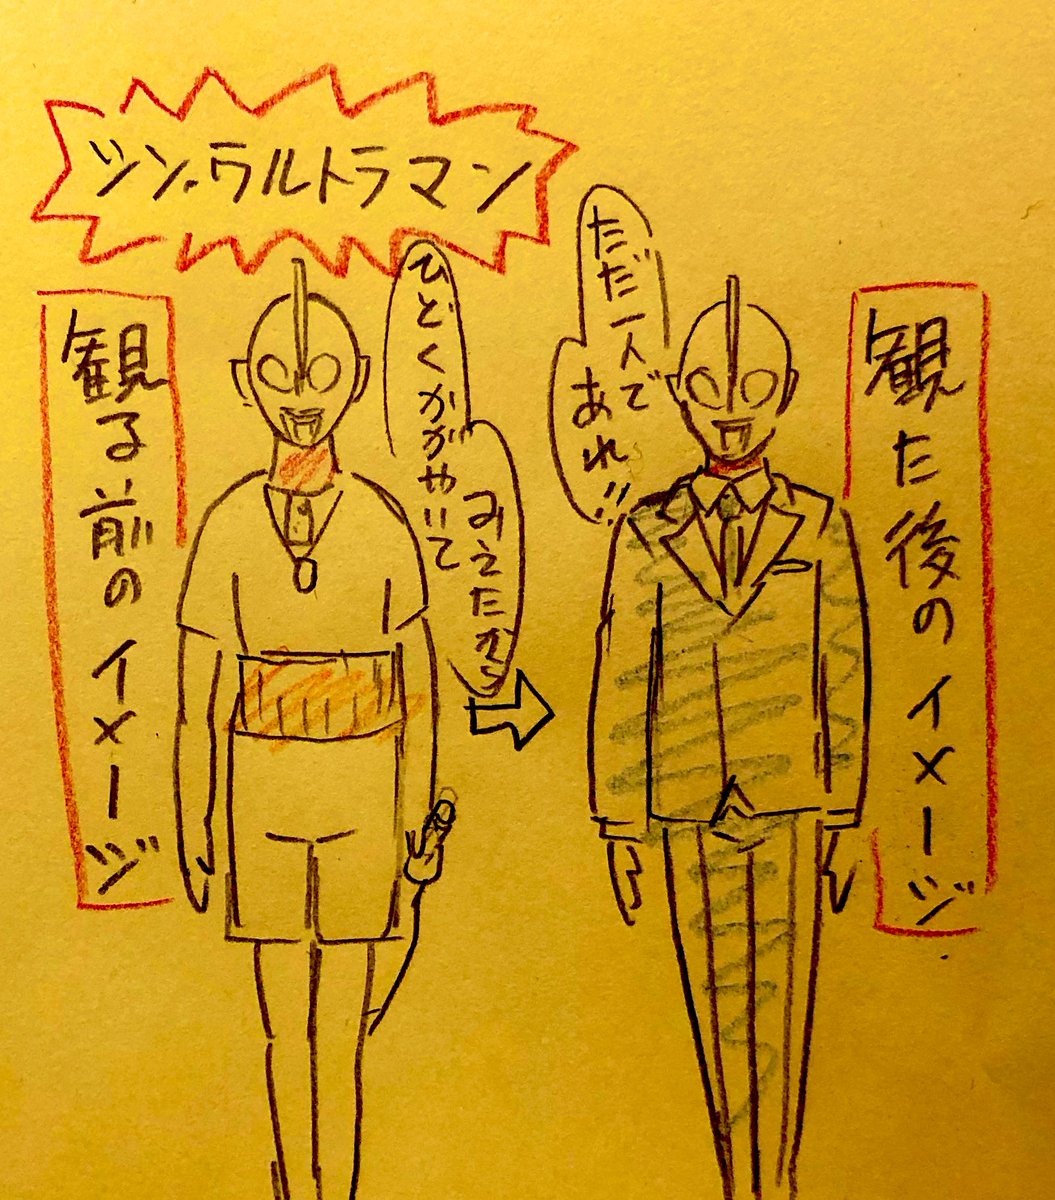 シン・ウルトラマン
観る前のイメージ
ひどくかがやいて
みえたから
ただ一人で
あれ!!
観た後のイメージ